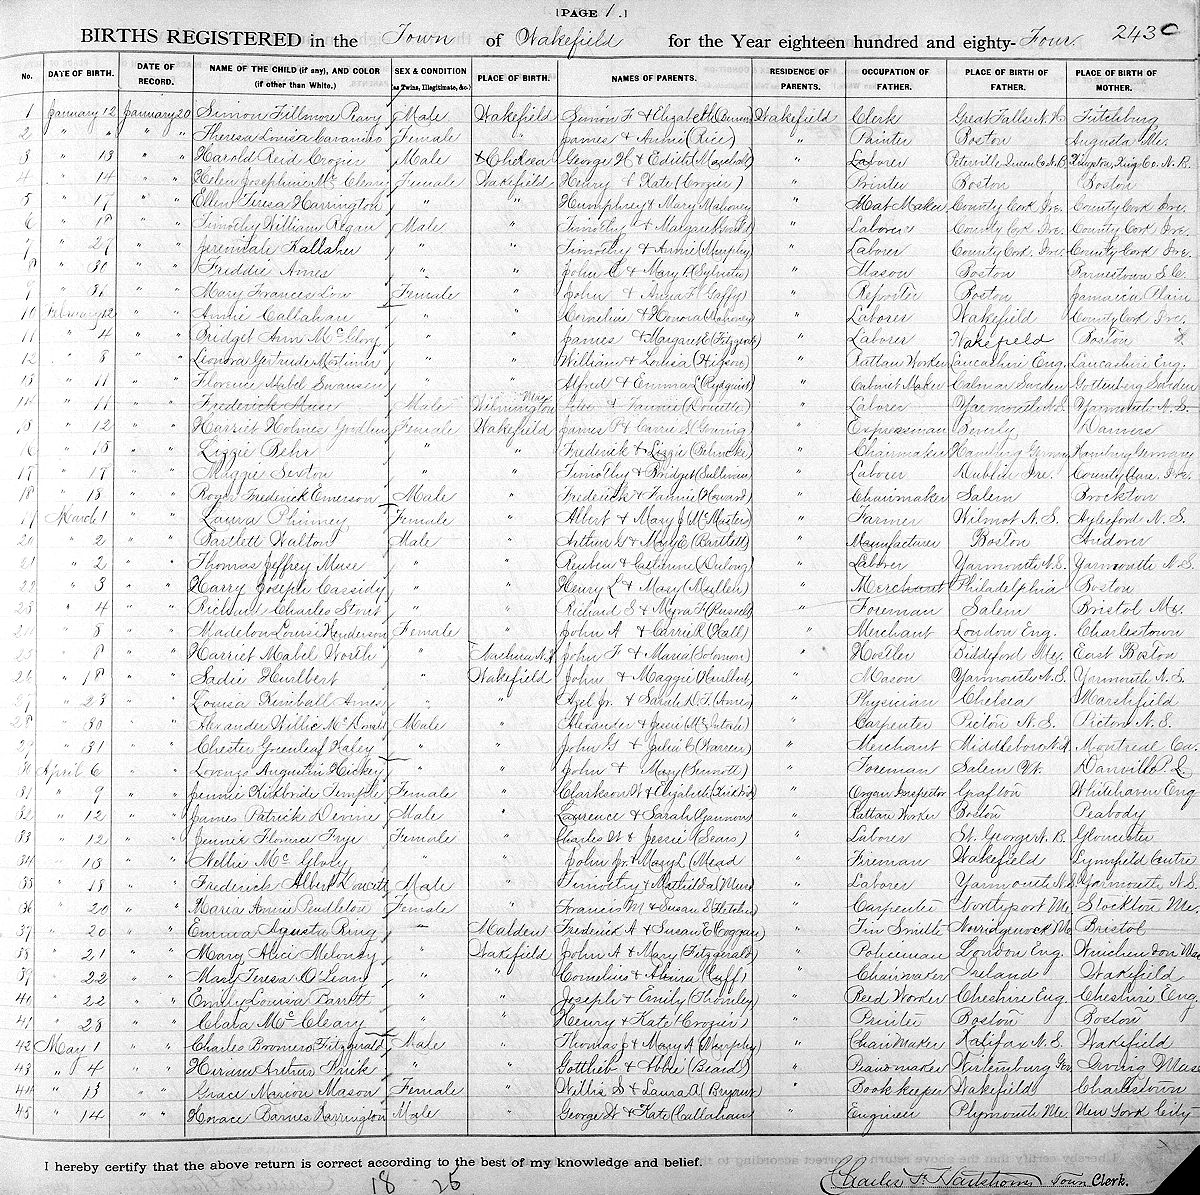 [PAGE 1.]
BIRTHS REGISTERED in the Town of Wakefield for the Year eighteen hundred and eighty-Four. 243
No. DATE OF BIRTH. DATE OF RECORD. NAME OF THE CHILD (if any), AND COLOR (if other than White.) SEX & CONDITION (as Twins, Illegitimate, &c.) PLACE OF BIRTH. NAMES OF PARENTS. RESIDENCE OF PARENTS. OCCUPATION OF FATHER. PLACE OF BIRTH OF FATHER. PLACE OF BIRTH OF MOTHER.
1 January 12 January 20 Simon Fillmore Peavy Male Wakefield Simon F & Elizabeth Wakefield Clerk Great Falls N.H. Fitchburg
2 " " " " Theresa Louisa Female " James & Annie (Rice) " Painter Boston Augusta Me.
3 " 13 " " Harold Reid Crozier Male Chelsea George H & Edith " Laborer Kingston, King Co. N.B.
4 " 14 " " Helen Josephine Mc Cleary Female Wakefield Henry & Kate (Crozier) " Printer Boston Boston
5 " 17 " " Ellen Teresa Harrington " " Humphrey & Mary Mahoney " Hat Maker County Cork Ire. County Cork Ire.
6 " 18 " " Timothy William Regan Male " Timothy & Margaret " Laborer County Cork Ire. County Cork Ire.
7 " 27 " " Jeremiah Kallaher " " Timothy & Annie (Murphy) " Laborer County Cork Ire. County Cork Ire.
8 " 30 " " Freddie Ames " " John C & Mary (Sylvester) " Mason Boston Barnestown S.C.
9 " 31 " " Mary Frances Low Female " John & Anna F Gaffy) " Reporter Boston Jamaica Plain
10 February 12 " " Annie Callahan " " Cornelius & Honora (Mahoney) " Laborer Wakefield County Cork Ire.
11 " 4 " " Bridget Ann Mc Glory " " James & Margaret E (Fitzgerald) " Laborer Wakefield Boston
12 " 8 " " Leonora Gertrude Mortimer " " William & Louisa (Higson) " Rattan Worker Lancashire Eng. Lancashire Eng.
13 " 11 " " Florence Mabel Swanson " " Alfred & Emma L (Rydquist) " Cabinet Maker Calmar Sweden Gottenberg Sweden
14 " 11 " " Frederick Muse Male Wilmington Mass & Fannie (Doucette) " Laborer Yarmouth N.S. Yarmouth N.S.
15 " 12 " " Harriet Holmes Female Wakefield James P & Carrie S " Expressman Beverly Danvers
16 " 15 " " Lizzie Behr " " Frederick & Lizzie (Behncke) " Chairmaker Hamburg Germany Hamburg Germany
17 " 17 " " Maggie Sexton " " Timothy & Bridget (Sullivan) " Laborer Dublin Ire. County Clare Ire.
18 " 18 " " Roger Frederick Emerson Male " Frederick & Fannie (Howard) " Chairmaker Salem Brockton
19 March 1 " " Laura Phinney Female " Albert & Mary J (McMasters) " Farmer Wilmot N.S. Aylesford N.S.
20 " 2 " " Bartlett Walton Male " Arthur G & Mary E (Bartlett) " Manufacturer Boston Andover
21 " 2 " " Thomas Jeffrey Muse " " Reuben & Catherine (Delong) " Laborer Yarmouth N.S. Yarmouth N.S.
22 " 3 " " Harry Joseph Cassidy " " Henry L & Mary (Mullen) " Merchant Philadelphia Boston
23 " 4 " " Richard Charles Stout " " Richard S & Myra F (Russell) " Foreman Salem Bristol Me.
24 " 8 " " Madelon Louisi Henderson Female " John A & Carrie K (Hall) " Merchant London Eng. Charlestown
25 " 8 " " Harriet Mabel Worth " Nashua N.H. John F & Maria (Solomon) " Hostler Biddeford Me. East Boston
26 " 18 " " Sadie Hurlbert " Wakefield John & Maggie (Hurlbert " Mason Yarmouth N.S. Yarmouth N.S.
27 " 23 " " Louisa Kimball Ames " " Azel Jr. & Sarah D. F. (Ames) " Physician Chelsea Marshfield
28 " 30 " " Alexander Willie McDonald Male " Alexander & Jessie (McIntosh) " Carpenter Pictou N.S. Pictou N.S.
29 " 31 " " Chester Greenleaf Haley " " John G & Julia E (Warren) " Merchant Middleboro Montreal Ca.
30 April 6 " " Lorenzo Augustin Hickey " " John & Mary (Sinnott) " Foreman Salem Danville P.Q.
31 " 9 " " Jennie Kirkbride Temple Female " Clarkson W & Elizabeth (Kirkbride) " Organ Inspector Grafton Whitehaven Eng
32 " 12 " " James Patrick Devine Male " Laurence & Sarah (Gannon) " Rattan Worker Boston Peabody
33 " 12 " " Jennie Florence Frye Female " Charles W & Jessie (Sears) " Laborer St. George N.B. Gloucester
34 " 13 " " Nellie Mc Glory " " John Jr. & Mary L (Mead " Fireman Wakefield Lynnfield Centre
35 " 18 " " Frederick Albert Doucett Male " Timothy & Mathilda (Muse) " Laborer Yarmouth N.S. Yarmouth N.S.
36 " 20 " " Maria Annie Pendleton Female " Francis M & Susan S (Fletcher) " Carpenter Northport Me Stockton Me.
37 " 20 " " Emma Agusta Ring " Malden Frederick A & Susan E (Coggan) " Tin Smith Norridgewock Me Bristol
38 " 21 " " Mary Alice Meloney " Wakefield John A & Mary (Fitzgerald) " Policeman London Eng. Winchendon Mass
39 " 22 " " Mary Teresa O'Leary " " Cornelius & (Cuff) " Chairmaker Ireland Wakefield
40 " 22 " " Emily Louisa Barrett " " Joseph & Emily (Thornley) " Reed Worker Cheshire Eng. Cheshire Eng
41 " 28 " " Clara Mc Cleary " " Henry & Kate (Crozier) " Printer Boston Boston
42 May 1 " " Charles Bromero Fitzgerald Male " Thomas J & Mary A (Murphy) " Chair Maker Halifax N.S. Wakefield
43 " 4 " " Hiram Arthur Krick " " Gottlieb & Abbie (Beard) " Piano maker Wirtemburg Ger Irving Mass
44 " 13 " " Grace Marion Mason Female " Willis S & Laura A (Bryant) " Book keeper Wakefield Charlestown
45 " 14 " " Horace Barnes Harrington Male " George W & Kate (Callahan) " Engineer Plymouth Me. New York City
I hereby certify that the above return is correct according to the best of my knowledge and belief.
18 - 25
Charles F. Hartshorne Town Clerk.